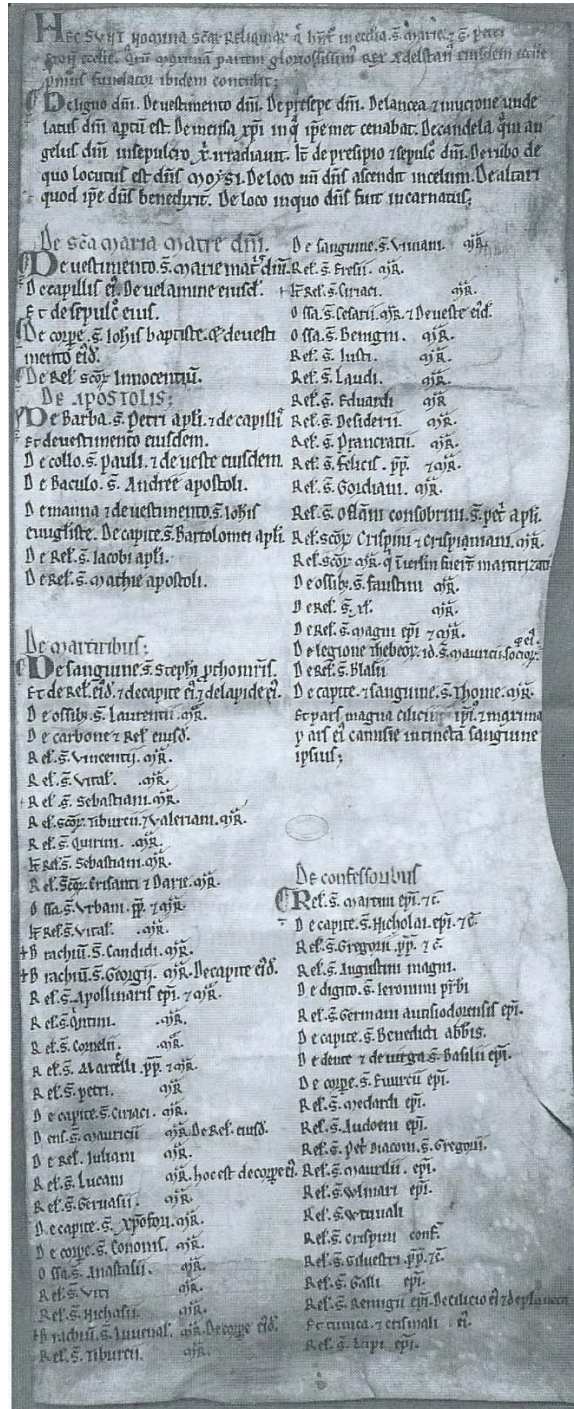 HEC SUNT NOMINA scar Reliquiar q hnt in ecclia. s. marie. & s. petri
ecclie. maximā partem gloriosissim rex Adelstan eiusdem ecclie
prim fundator ibidem contulit:
De ligno dni. De vestimento dni. De presepe dni. De lancea & mucrone unde
latus dni aptū est. De mensa xpi in q ipemet cenabat. De candela qm an
gelus dni in sepulcro irradiavit. It de presipio & sepulc dni. De rubo de
quo locutus est dns moysi. De loco un dns ascendit in celum. De altari
quod ipe dns benedixit. De loco in quo dns fuit incarnatus;
De scā maria matre dni.
De vestimento. s. marie mat dni.
De capillis ei. De velamine eiusd.
Et de sepulc eius.
De corpe. s. Iohis baptiste. & de vesti
mento eid.
De Rel scor Innocentiū.
DE APOSTOLIS;
De Barba. s. Petri apli. & de capill
Et de vestimento eiusdem.
De collo. s. pauli. & de veste eiusdem.
De Baculo. s. Andree apostoli.
De manna & de vestimento. s. Iohis
evngliste. De capite. s. Bartolomei apli.
De Rel. s. Iacobi apli.
De Rel. s. mathie apostoli.
De martiribus;
De sanguine. s. Stephi pthomris.
Et de Rel. eid. & de capite ei & de lapide ei.
De ossib. s. Laurentii. mr.
De carbone & Rel eiusd.
Rel. s. Vincentii. mr.
Rel. s. Vital. mr.
Rel. s. Sebastiani. mr.
Rel. scor. Tiburcii. & Valeriani. mr.
Rel. s. Quirini. mr.
It Rel. s. Sebastiani. mr.
Rel. scor. Crisanti & Darie. mr.
Ossa. s. Urbani. pp. & mr.
It Rel. s. Vital. mr.
Brachiū. s. Candidi. mr.
Brachiū. s. Georgii. mr. De capite eid.
Rel. s. Apollinaris epi. & mr.
Rel. s. Qntini. mr.
Rel. s. Cornelii. mr.
Rel. s. Marcelli. pp. & mr.
Rel. s. petri. mr
De capite. s. Ciriaci. mr.
s. mauricii mr. De Rel. eiusd.
De Rel. Iuliani mr
Rel. s. Lucani mr. hoc est de corpe ei.
Rel. s. Gervasii. mr.
De capite. s. xpofori. mr.
De corpe. s. Cononis. mr.
Ossa. s. Anastasii. mr.
Rel. s. Viti mr.
Rel. s. Nichasii. mr.
Brachiū. s. Iuvenal. mr. De corpe eid.
Rel. s. Tiburcii. mr.
De sanguine. s. Viviani. mr.
Rel. s. mr.
It Rel. s. Ciriaci. mr.
Ossa. s. Cesarii. mr. & De veste eid.
Ossa. s. Benigni. mr.
Rel. s. Iusti. mr.
Rel. s. Laudi. mr.
Rel. s. Eduardi mr
Rel. s. Desiderii. mr.
Rel. s. Prancratii. mr.
Rel. s. felicis. pp. & mr.
Rel. s. Gordiani. mr.
Rel. s. consobrini. s. pet apli.
Rel. scor Crispini & Crispiniani. mr.
Rel. scor mr. q fuer martirizati
De ossib. s. faustini mr.
De Rel. s. xl. mr.
De Rel. s. magni epi & mr.
De legione thebeor. id. s. mauricii socior.
De Rel. s. Blasii
De capite. & sanguine. s. Thome. mr.
Et pars magna cilicii ipi. & maxima
pars ei camisie intincta sanguine
ipsius;
De confessoribus
Rel. s. martini epi. & c.
De capite. s. Nicholai. epi. & c.
Rel. s. Gregorii. pp. & c.
Rel. s. Augustini magni.
De digito. s. Ieronimi prbi
Rel. s. Germani autisiodorensis epi.
De capite. s. Benedicti abbis.
De dente & de virga s. Basilii epi.
De corpe. s. Euurcii epi.
Rel. s. medardi epi.
Rel. s. Audoeni epi.
Rel. s. Pet Diaconi. s. Gregorii.
Rel. s. maurilii. epi.
Rel. s. Wlmari epi.
Rel. s. Winuali
Rel. s. Crispini conf.
Rel. s. Silvestri. pp. & c.
Rel. s. Galli epi.
Rel. s. Remigii epi. De cilicio ei &
Et tunica. & crismali ei.
Rel. s. Lupi epi.